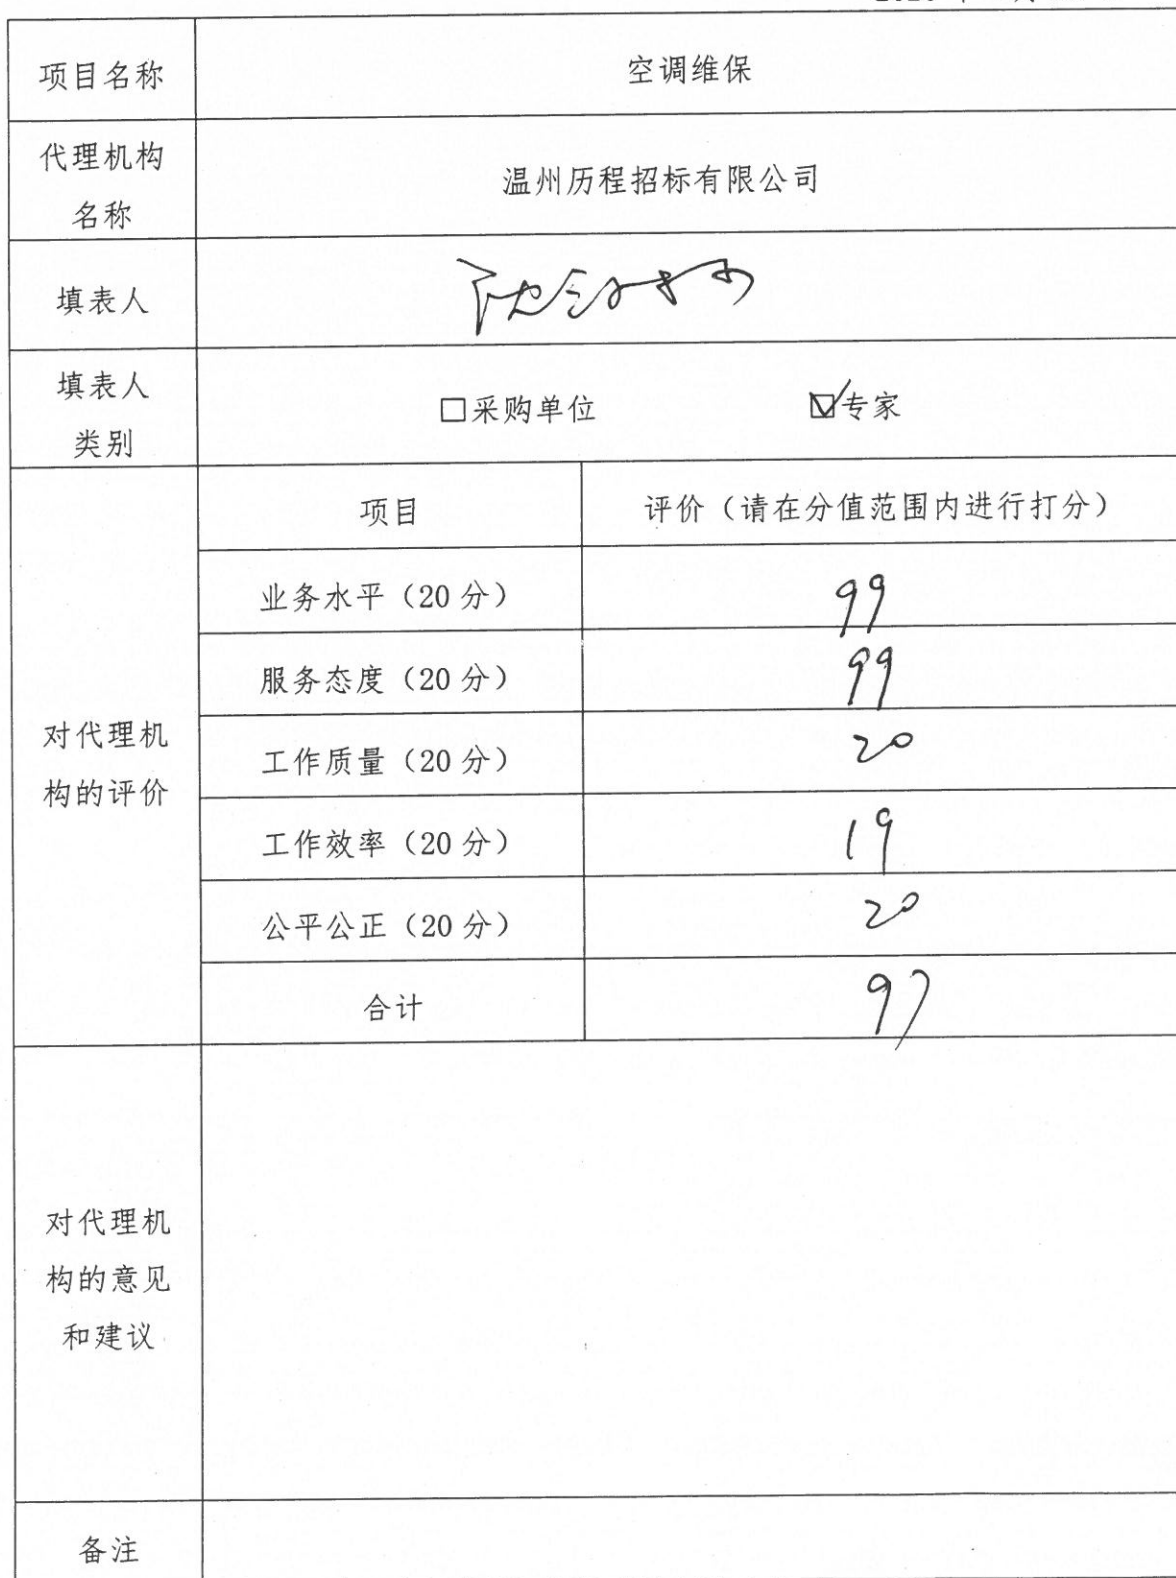 项目名称
空调维保
代理机构
名称
温州历程招标有限公司
填表人
填表人
类别
□采购单位 ☑专家
对代理机
构的评价
项目 评价（请在分值范围内进行打分）
业务水平（20分） 99
服务态度（20分） 99
工作质量（20分） 20
工作效率（20分） 19
公平公正（20分） 20
合计 97
对代理机
构的意见
和建议
备注